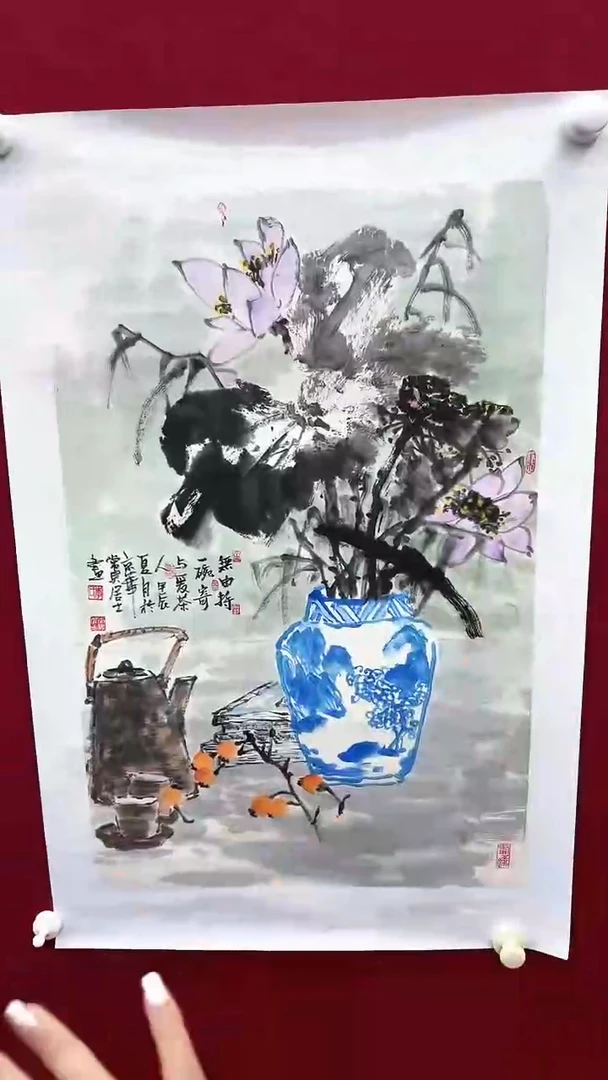 無由持
一碗寄
与愛茶
人甲辰
夏月於
京華
居士
畫